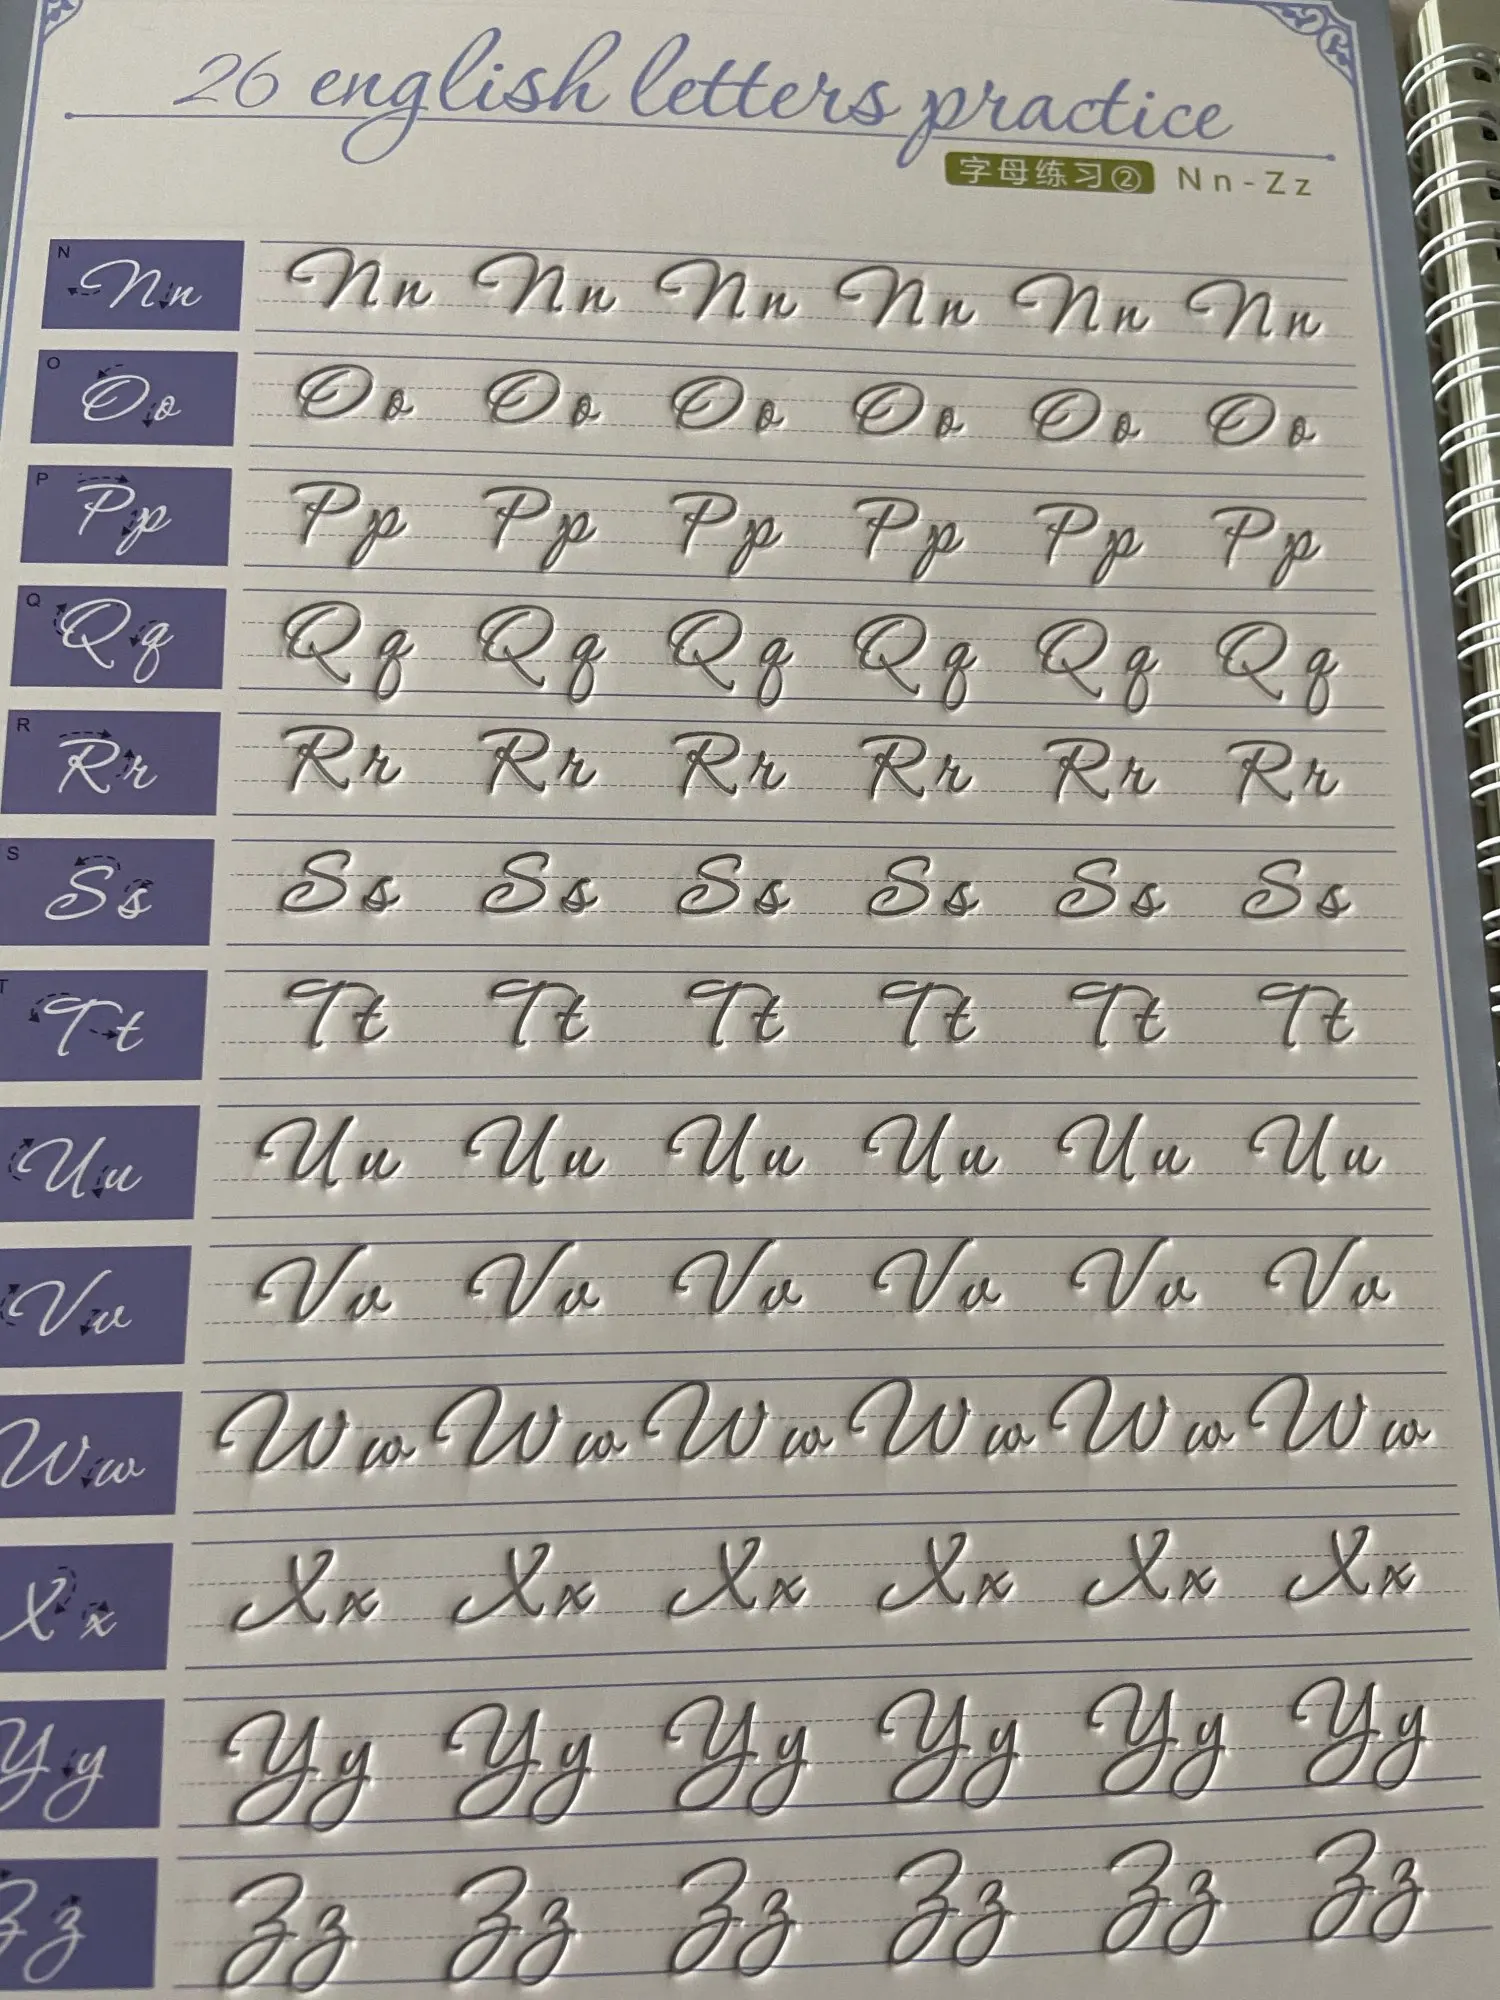 26 english letters practice
字母练习② Nn-Zz
N Nn Nn Nn Nn Nn Nn Nn
O Oo Oo Oo Oo Oo Oo Oo
P Pp Pp Pp Pp Pp Pp Pp
Q Qq Qq Qq Qq Qq Qq Qq
R Rr Rr Rr Rr Rr Rr Rr
S Ss Ss Ss Ss Ss Ss Ss
T Tt Tt Tt Tt Tt Tt Tt
Uu Uu Uu Uu Uu Uu Uu
Vv Vv Vv Vv Vv Vv Vv
Ww Ww Ww Ww Ww Ww Ww
Xx Xx Xx Xx Xx Xx Xx
Yy Yy Yy Yy Yy Yy Yy
Zz Zz Zz Zz Zz Zz Zz